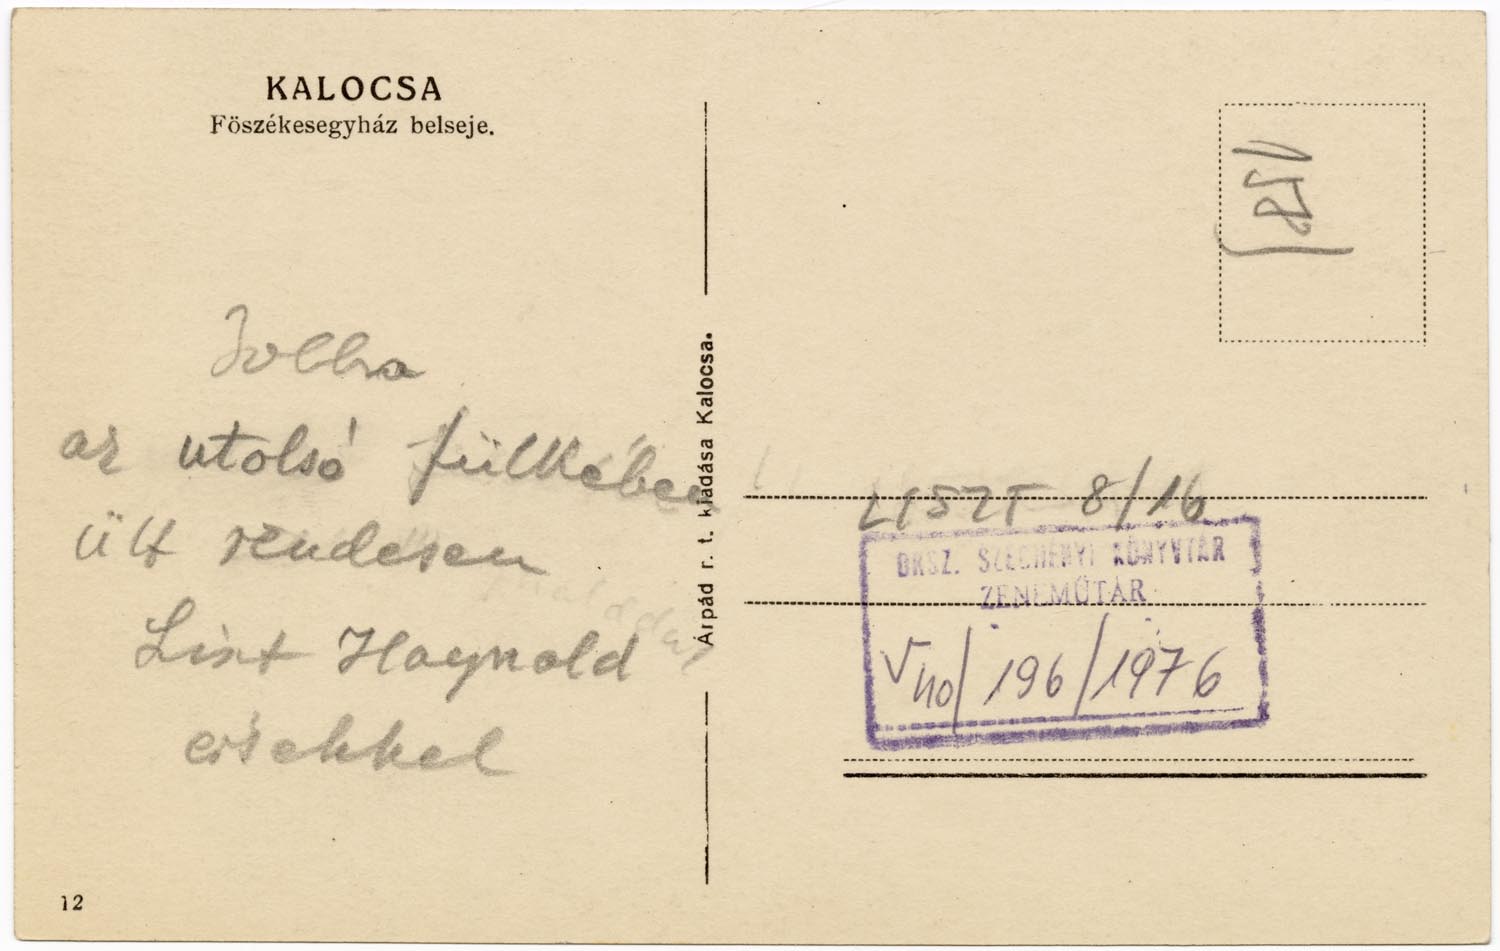 KALOCSA
Föszékesegyház belseje.
Jobbra
az utolsó fülkében
ült rendesen
Liszt Haynald
érsekkel
12
Árpád r. t. kiadása Kalocsa.
LISZT 8/16
ORSZ. SZÉCHÉNYI KÖNYVTÁR
ZENEMŰTÁR
V 40/196/1976